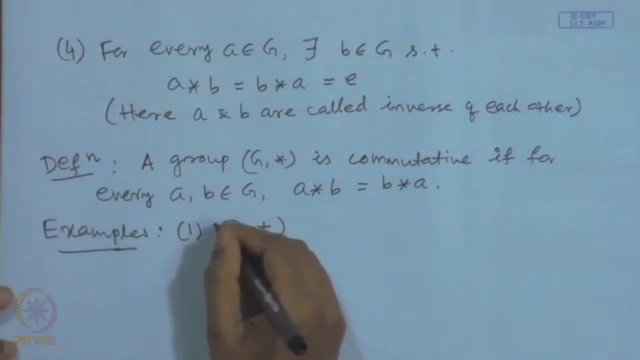 © CET
I.I.T. KGP
(4) For every a ∈ G, ∃ b ∈ G s.t.
a * b = b * a = e
(Here a & b are called inverse of each other)
Defⁿ: A group (G, *) is commutative if for
every a, b ∈ G, a * b = b * a.
Examples: (1)
NPTEL